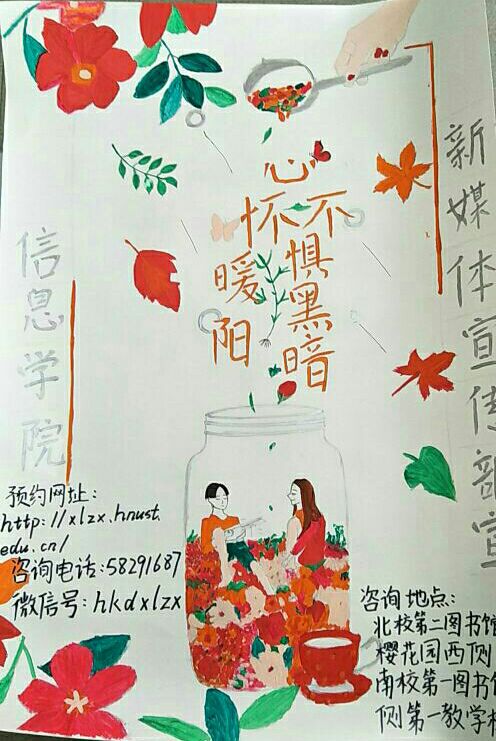 心怀暖阳
不惧黑暗
信息学院
新媒体宣传部宣
预约网址：
http://xlzx.hnust.
edu.cn/
咨询电话：58291687
微信号：hkdxlzx
咨询地点：
北校第二图书馆
樱花园西侧
南校第一图书馆
侧第一教学楼